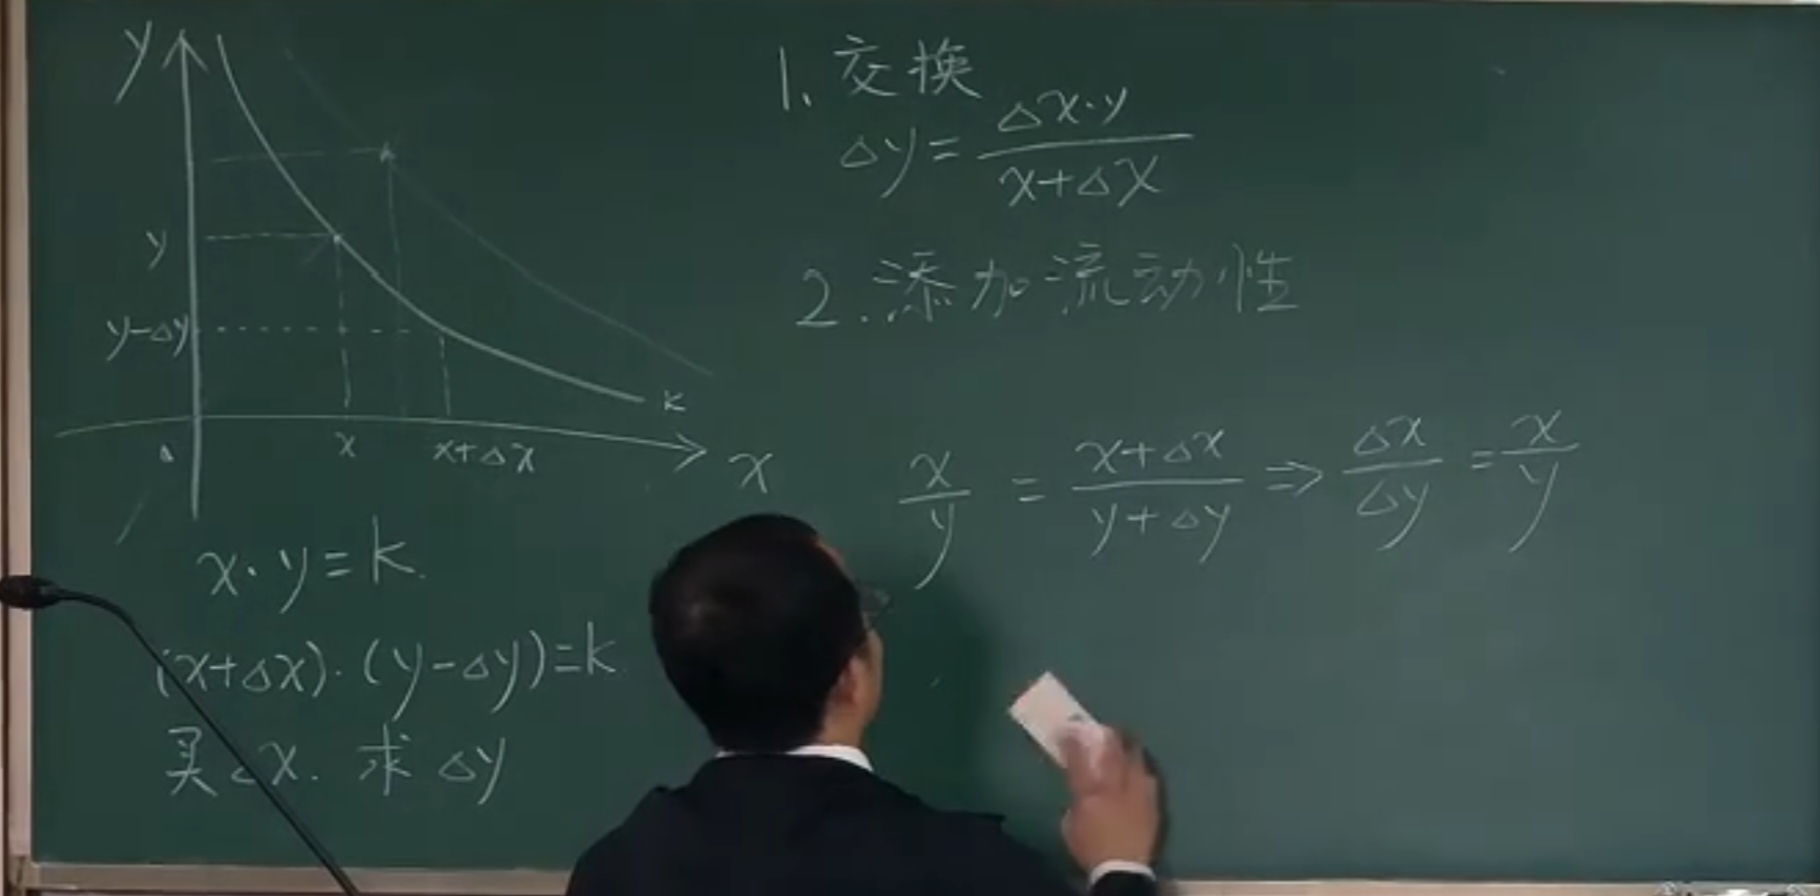 y
y
y-△y
x
x+△x
x
k
x·y=k
(x+△x)·(y-△y)=k
买△x. 求△y
1. 交换
△y=△x·y/x+△x
2. 添加流动性
x/y = x+△x/y+△y ⇒ △x/△y = x/y